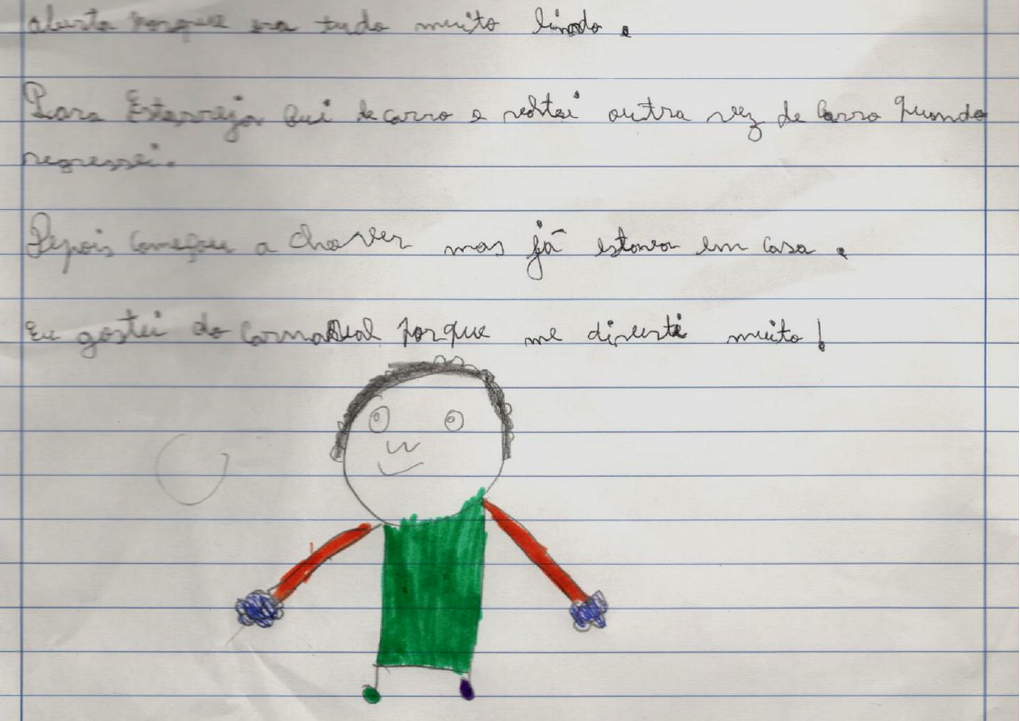 aberta porque era tudo muito lindo.
Para Estarreja fui de carro e voltei outra vez de carro quando
regressei.
Depois começou a chover mas já estava em casa.
Eu gostei do Carnaval porque me diverti muito!